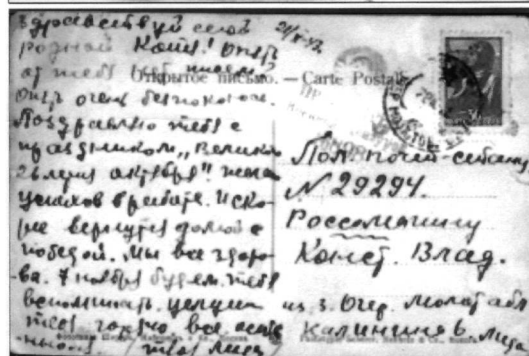 Здравствуй свой
родной Костя! Опять
от тебя нет писем
Опять очень беспокоюсь.
Поздравляю тебя с
праздником "Велико
26 летия октября" желаю
успехов в работе. И ско-
рее вернуться домой с
победой. Мы все здоро-
ва. 7 ноября будем тебя
вспоминать. целуем
тебя горячо все
твоя Лида
Открытое письмо. — Carte Postale
Полев. почт-
N 29294.
Россоманину
Конст. Влад.
из г. Молот обл
Калинина 6. Лида